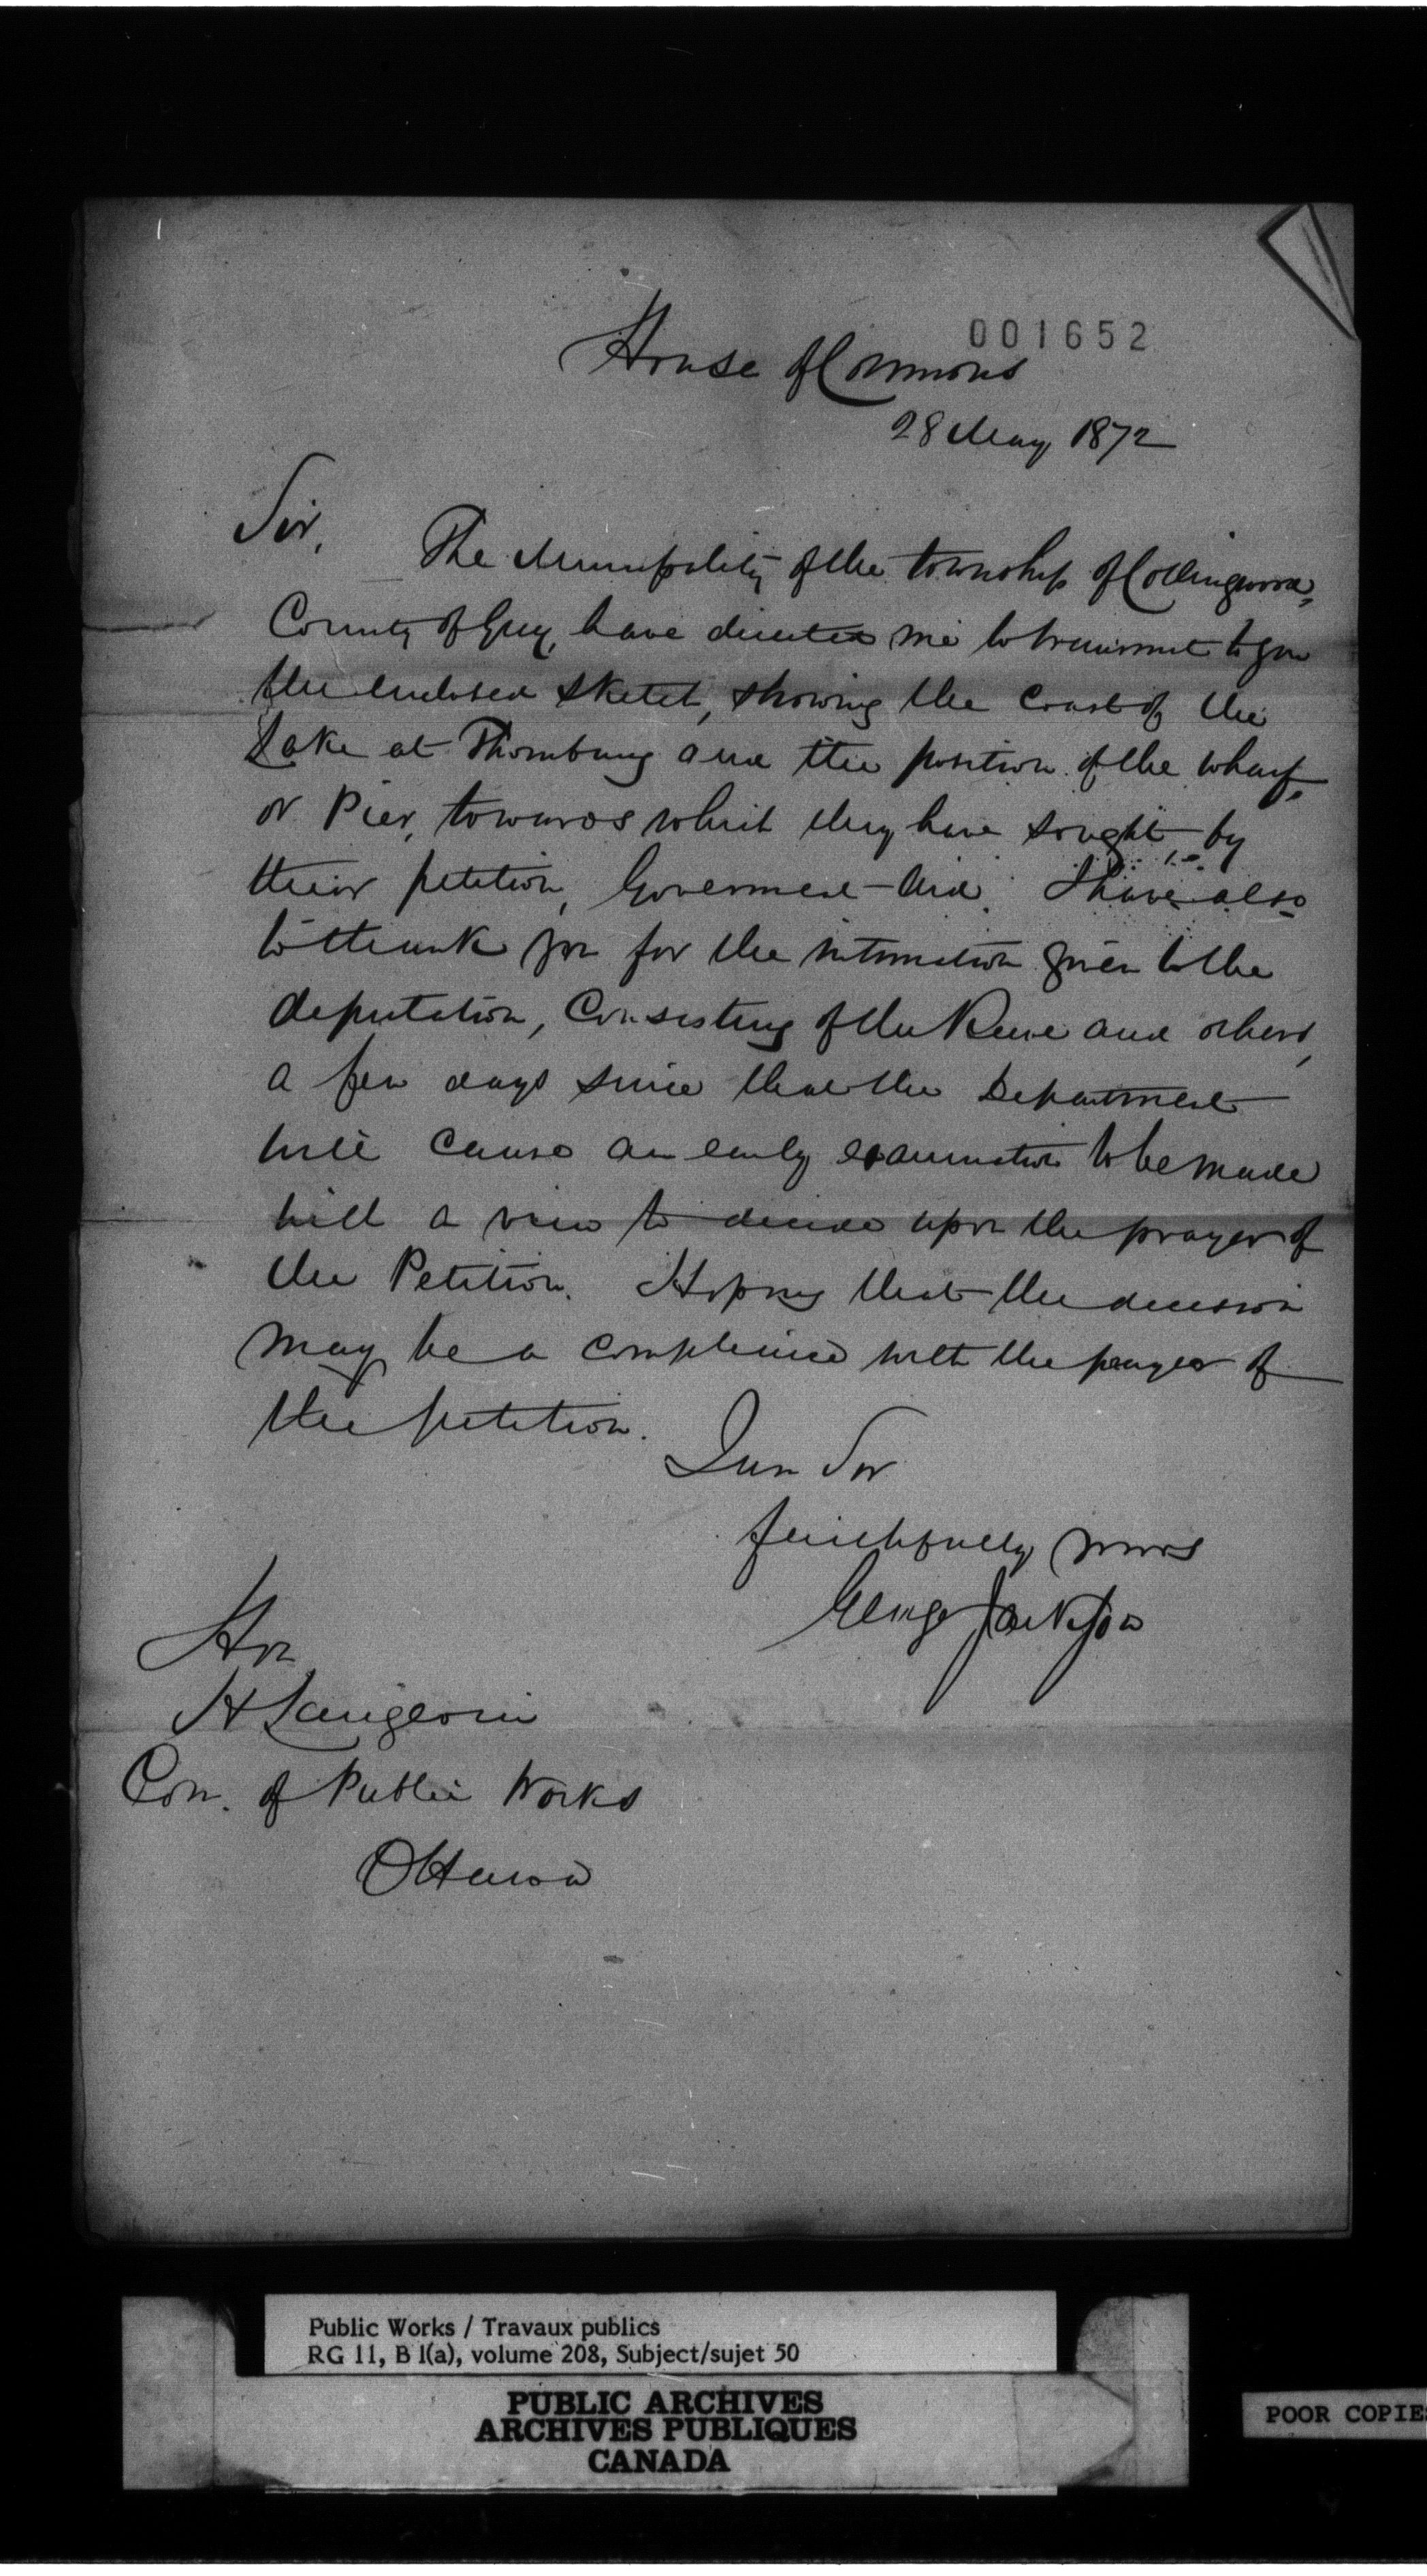 001652
House of Commons
28 May 1872
Sir,
The Municipality of the township of Collingwood,
County of Grey, have directed me to transmit to you
the enclosed sketch, showing the Coast of the
Lake at Thornbury and the position of the wharf
or Pier, towards which they have sought, by
their petition, Government Aid. I have also
to thank you for the intimation given to the
deputation, Consisting of the Reeve and others,
a few days since that the Department
will cause an early examination to be made
with a view to decide upon the prayer of
the Petition. Hoping that the decision
may be a compliance with the prayer of
the petition.
I am Sir
faithfully yours
George Jackson
Hon
H Langevin
Com. of Public Works
Ottawa
Public Works / Travaux publics
RG 11, B 1(a), volume 208, Subject/sujet 50
PUBLIC ARCHIVES
ARCHIVES PUBLIQUES
CANADA
POOR COPIE